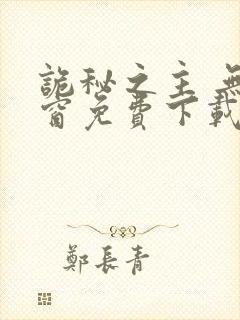 詭秘之主 無
窗免費下載
鄭長青